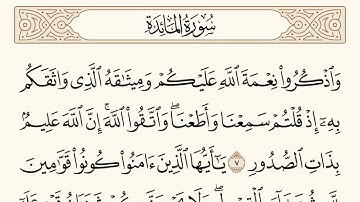 سُورَةُ المَائِدَةِ
وَٱذْكُرُوا۟ نِعْمَةَ ٱللَّهِ عَلَيْكُمْ وَمِيثَٰقَهُ ٱلَّذِى وَاثَقَكُم
بِهِۦٓ إِذْ قُلْتُمْ سَمِعْنَا وَأَطَعْنَا ۖ وَٱتَّقُوا۟ ٱللَّهَ ۚ إِنَّ ٱللَّهَ عَلِيمٌۢ
بِذَاتِ ٱلصُّدُورِ ٧ يَٰٓأَيُّهَا ٱلَّذِينَ ءَامَنُوا۟ كُونُوا۟ قَوَّٰمِينَ